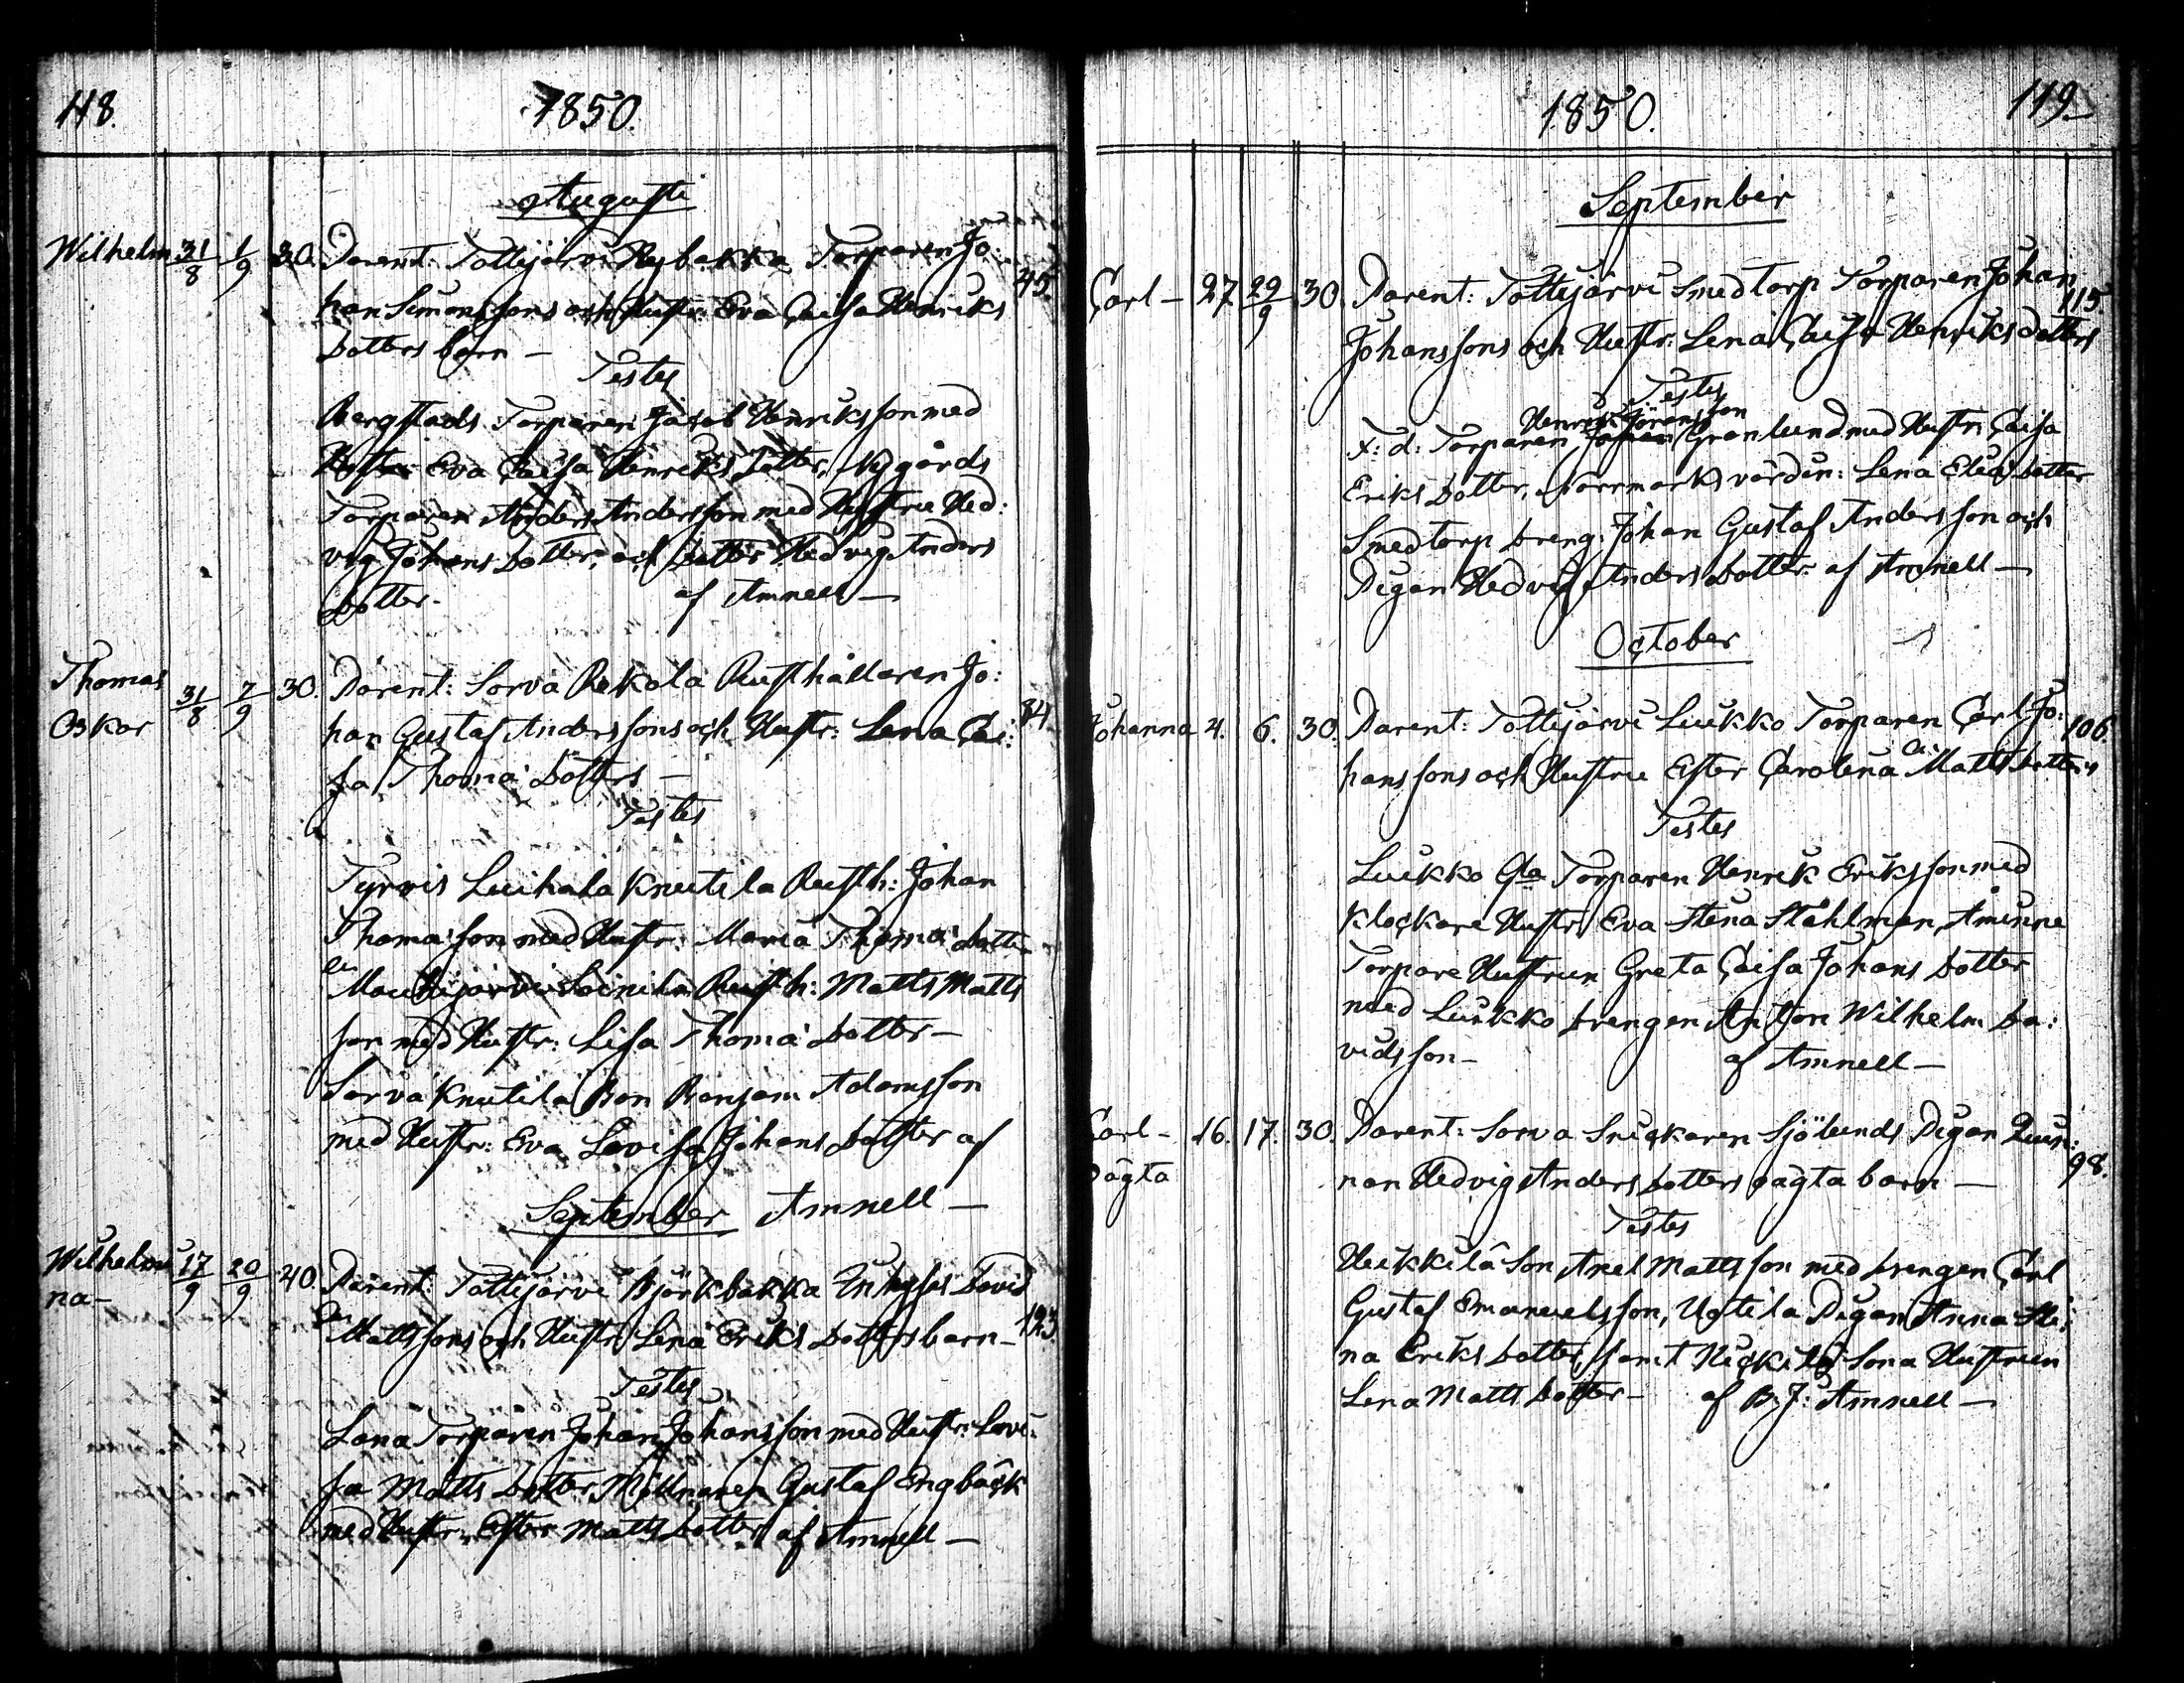 118.
1850.
Augusti
Wilhelm 31/8 1/9 30. Parent: Tottijärvi Nybakka Torparen Jo:
han Simonssons och Hustr: Eva Caisa Henriks
Dotters barn — 45.
Testes
Bergstads Torparen Jakob Henriksson med
Hustru Eva Caisa Henriks Dotter, Nygårds
Torparen Anders Andersson med Hustru Hed:
vig Johans Dotter, och Dotter Hedvig Anders
Dotter. af Amnell —
Thomas
Oskar 31/8 7/9 30. Parent: Sorva Rekola Rusthållaren Jo:
han Gustaf Anderssons och Hustr: Lena Cai: 84.
sa Thomæ Dotters —
Testes
Tyrvis Luihala Knutila Rusth: Johan
Thomæson med Hustr: Maria Thomæ Dotter
Mouhijärvi Rusth: Matts Matts
son med Hustr: Lisa Thomæ Dotter —
Sorva Knutila Bon Benjam Adamsson
med Hustr: Eva Lovisa Johans Dotter af
Amnell —
September
Wilhelmi
na — 17/9 20/9 40. Parent: Tottijärvi Björkbakka Inhyses David
Mattssons och Hustr: Lena Eriks Dotters barn — 123.
Testes
Lana Torparen Johan Johansson med Hustr: Lovi:
sa Matts Dotter, Möllnaren Gustaf Engbäck
med Hustr: Ester Matts Dotter af Amnell —
1850.
119.
September
Carl — 27 29/9 30. Parent: Tottijärvi Smedtorp Torparen Johan 115.
Johanssons och Hustr: Lena Caisa Henriksdotters
Testes
Henrik Jöransson
F: d: Torparen Grönlund med Hustr: Caisa
Eriks Dotter, Norrmark värdin: Lena Elias Dotter
Smedtorp Dreng: Johan Gustaf Andersson och
Pigan Hedvig Anders Dotter. af Amnell —
October
Johanna 4. 6. 30. Parent: Tottijärvi Luikko Torparen Carl Jo: 106.
hanssons och Hustru Ester Carolina Matts Dotters
Testes
Luikko Torparen Henrik Eriksson med
Klockare Hustr: Eva Stina Ståhlman, Aminne
Torpare Hustrun Greta Caisa Johans Dotter
med Luikko Drengen Anton Wilhelm Da:
vidsson — af Amnell —
Carl — 16. 17. 30. Parent: Sorva Snickaren Sjölunds Pigan Quin:
oägta nan Hedvig Anders Dotters oägta barn — 98.
Testes
Heikkilä Son Axel Mattsson med Drengen Carl
Gustaf Emanuelsson, Uotila Pigan Anna Sti:
na Eriks Dotter, samt Heickilä Sona Hustrun
Lena Matts Dotter — af B. J: Amnell —